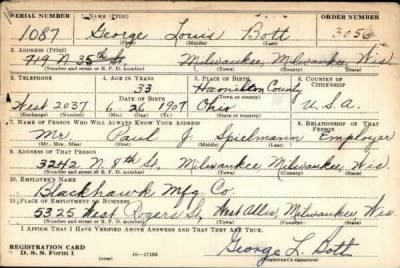 SERIAL NUMBER 1. NAME (Print) ORDER NUMBER
1087 George Louis Bott 3056
(First) (Middle) (Last)
2. ADDRESS (Print)
719 N 35th St. Milwaukee, Milwaukee, Wis
(Number and street or R. F. D. number) (Town) (County) (State)
3. TELEPHONE 4. AGE IN YEARS 5. PLACE OF BIRTH 6. COUNTRY OF CITIZENSHIP
33 Hamilton County
DATE OF BIRTH
West 2037 6 26 1907 Ohio U.S.A.
(Exchange) (Number) (Mo.) (Day) (Yr.) (State or country)
7. NAME OF PERSON WHO WILL ALWAYS KNOW YOUR ADDRESS 8. RELATIONSHIP OF THAT PERSON
Mr Paul J Spielmann Employer
(Mr., Mrs., Miss) (First) (Middle) (Last)
9. ADDRESS OF THAT PERSON
3242 N. 8th St. Milwaukee, Milwaukee, Wis.
(Number and street or R. F. D. number) (Town) (County) (State)
10. EMPLOYER'S NAME
Blackhawk Mfg Co.
11. PLACE OF EMPLOYMENT OR BUSINESS
5325 West Rogers St, West Allis, Milwaukee, Wis
(Number and street or R. F. D. number) (Town) (County) (State)
I AFFIRM THAT I HAVE VERIFIED ABOVE ANSWERS AND THAT THEY ARE TRUE.
REGISTRATION CARD
D. S. S. Form 1 (over) 16—17105 George L. Bott
(Registrant's signature)